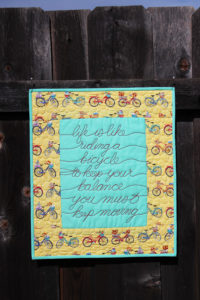 life is like
riding a
bicycle
to keep your
balance
you must
keep moving